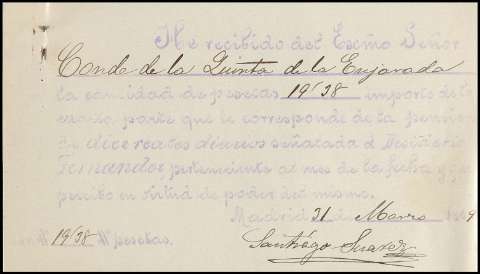 He recibido del Excmo Señor
Conde de la Quinta de la Enjarada
la cantidad de pesetas 19"38 importe de la
parte que le corresponde de la pension
de señalada á Desiderio
Fernandez perteneciente al mes de la fecha y que
percibo en virtud de poder del mismo.
Madrid 31 de Marzo
19"38 pesetas.
Santiago Suarez